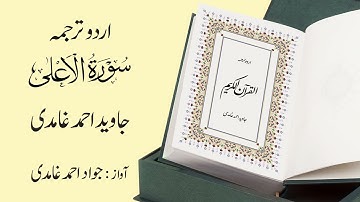 اردو ترجمہ
سورۃ الاعلیٰ
جاوید احمد غامدی
آواز : جواد احمد غامدی
اردو ترجمہ
القرآن الکریم
جاوید احمد غامدی